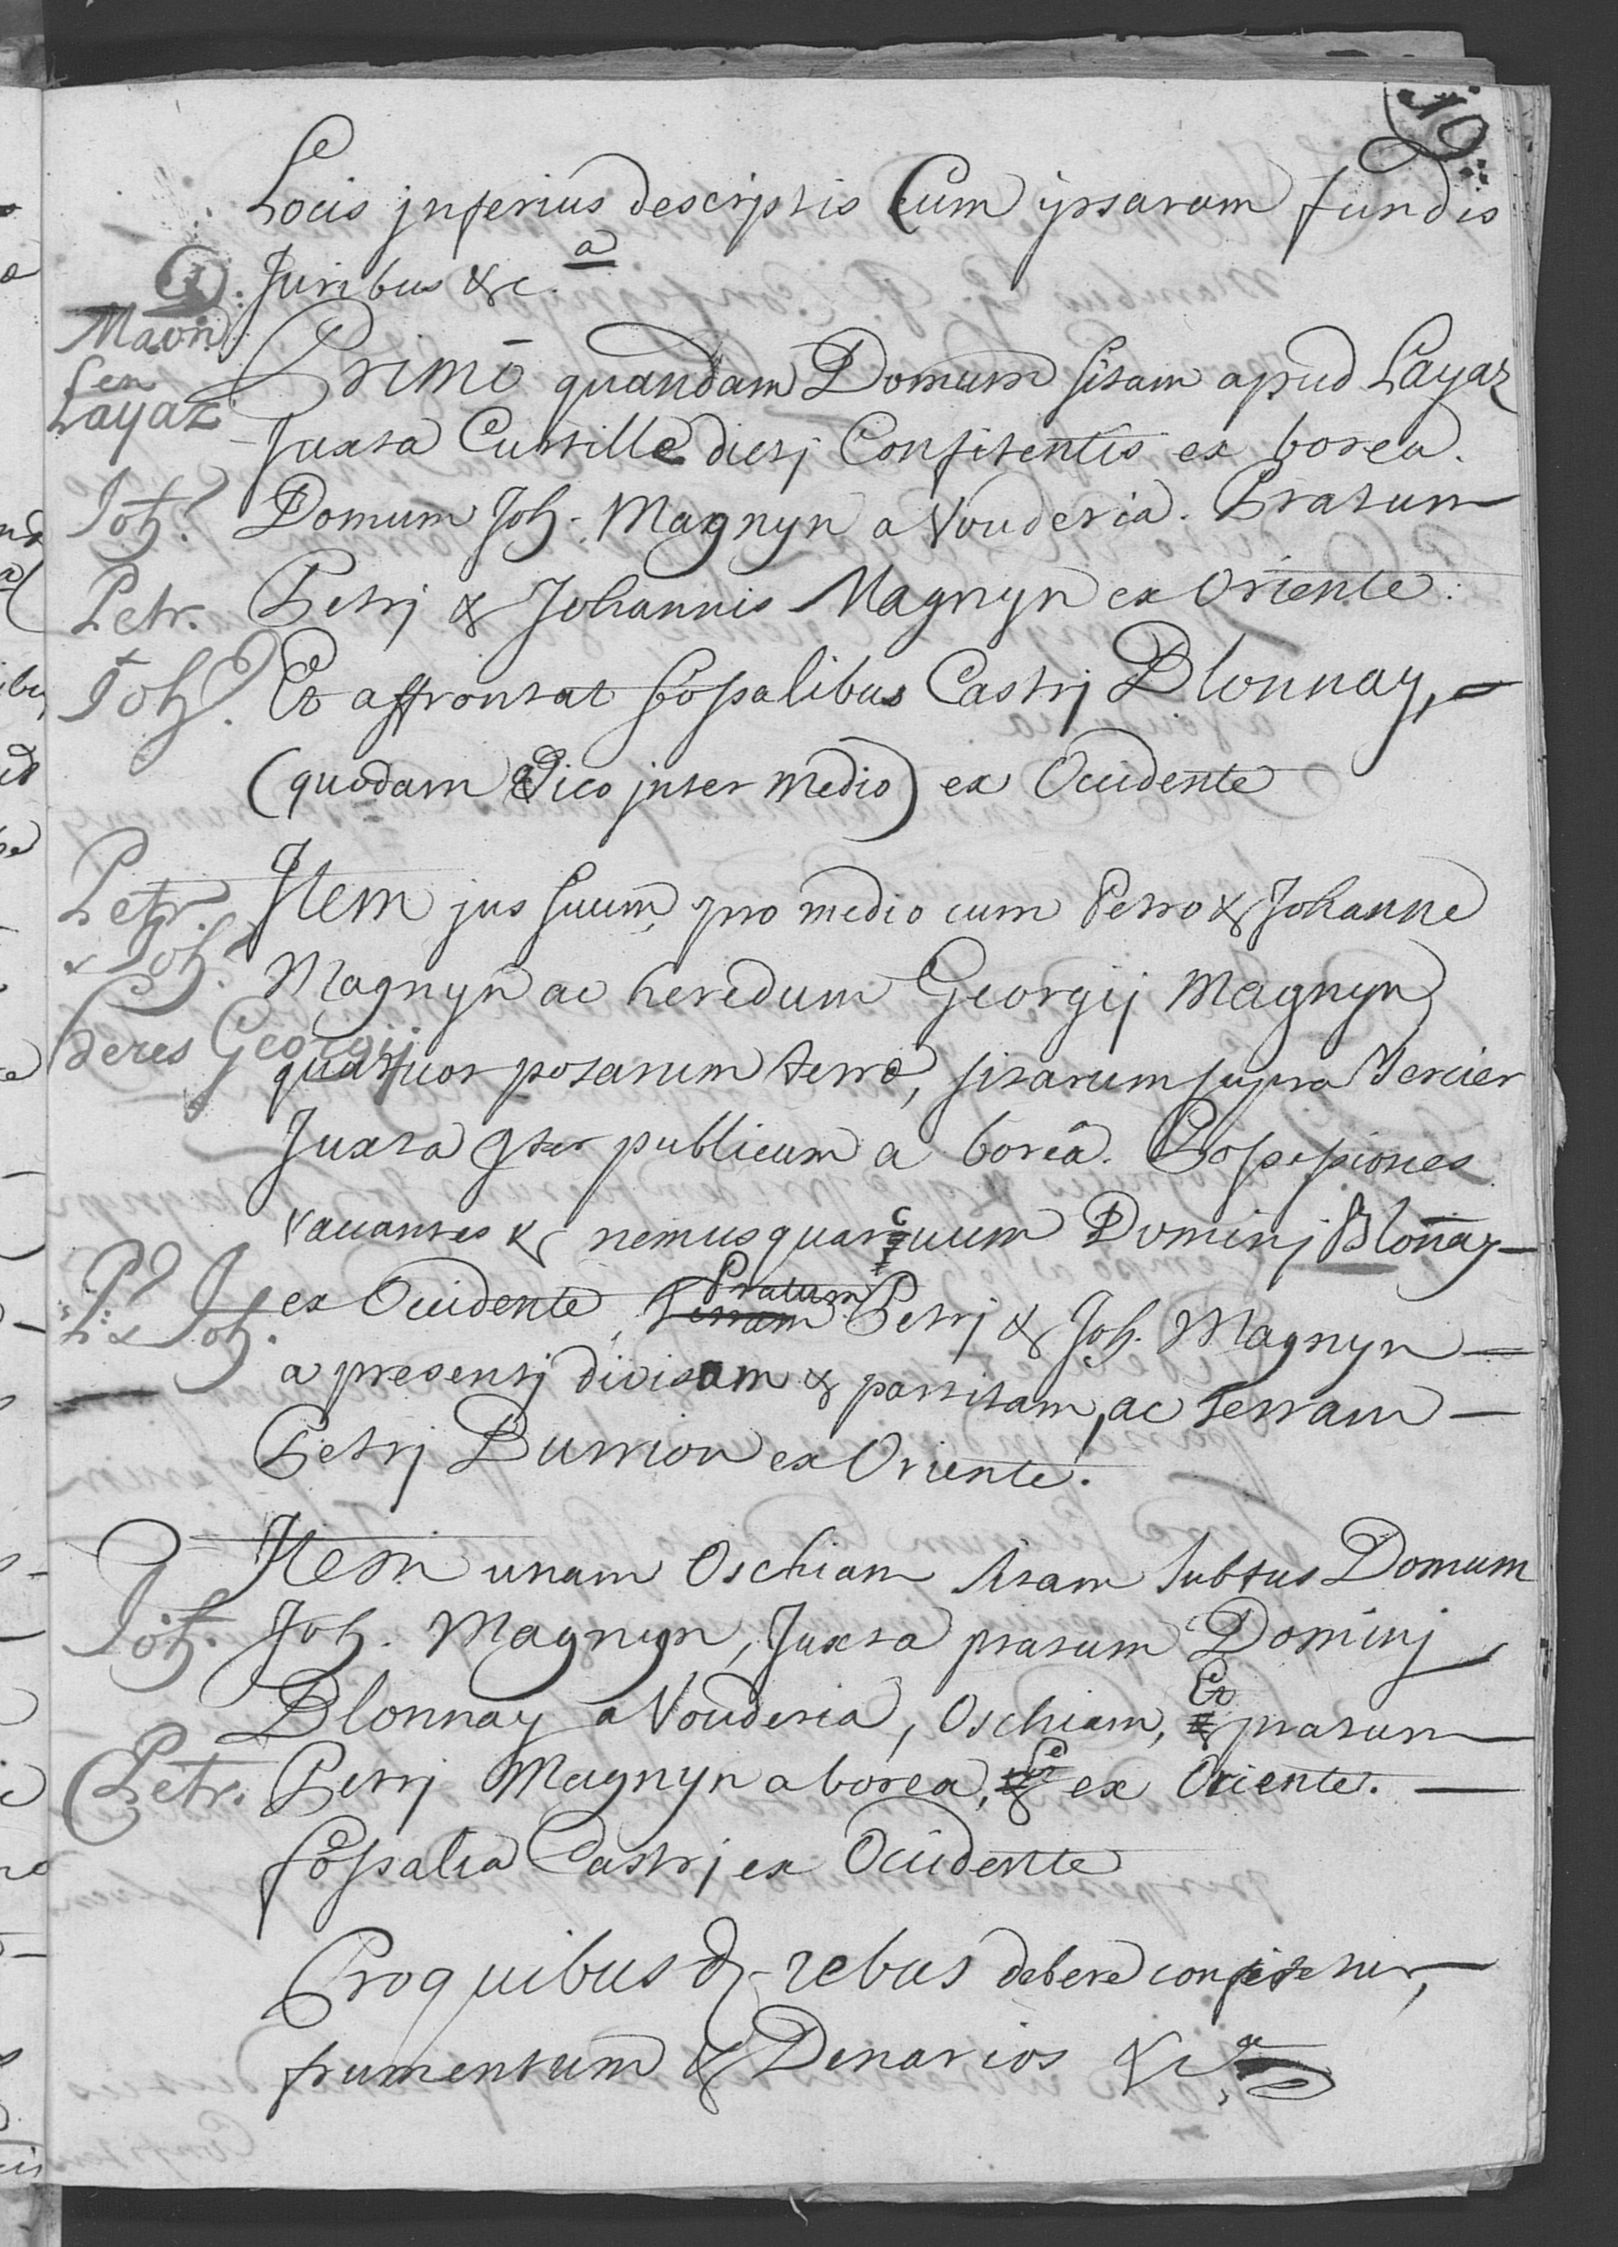 10
Locis jnferius descriptis Cum ipsarum fundis
Juribus &c.a
Maon
en
Layaz
Primò quandam Domum sitam apud Layaz
Juxta Curtille dicti Confitentis ex borea.
Joh.
Domum Joh. Magnyn a Vouderia. Pratum
Petr.
Petrj & Johannis Magnyn ex Oriente.
Joh.
Et affrontat fossalibus Castrj Blonnay,
(quodam Vico jntermedio) ex Occidente
Petr.
Item jus suum, pro medio cum Petro & Johanne
& Joh.
Magnyn ac heredum Georgij Magnyn
Heres Georgij
quattuor posarum terre, sitarum supra Vercier
Juxta Iter publicum a boreâ. Possessiones
vacantes & nemus quarcuum Dominj Blonay
P. & Joh.
ex Occidente, Terram Pratum Petrj & Joh. Magnyn
a presentj divisam & partitam, ac terram
Petrj Burrion ex Oriente.
Item unam Oschiam sitam subtus Domum
Joh.
Joh. Magnyn, Juxta pratum Dominj
Blonnay a Vouderia, Oschiam, Et pratum
Petr.
Petrj Magnyn a borea, Et ex Oriente.
fossalia Castrj ex Occidente
Pro quibus rebus debere confitetur,
frumentum & Denarios &c.a